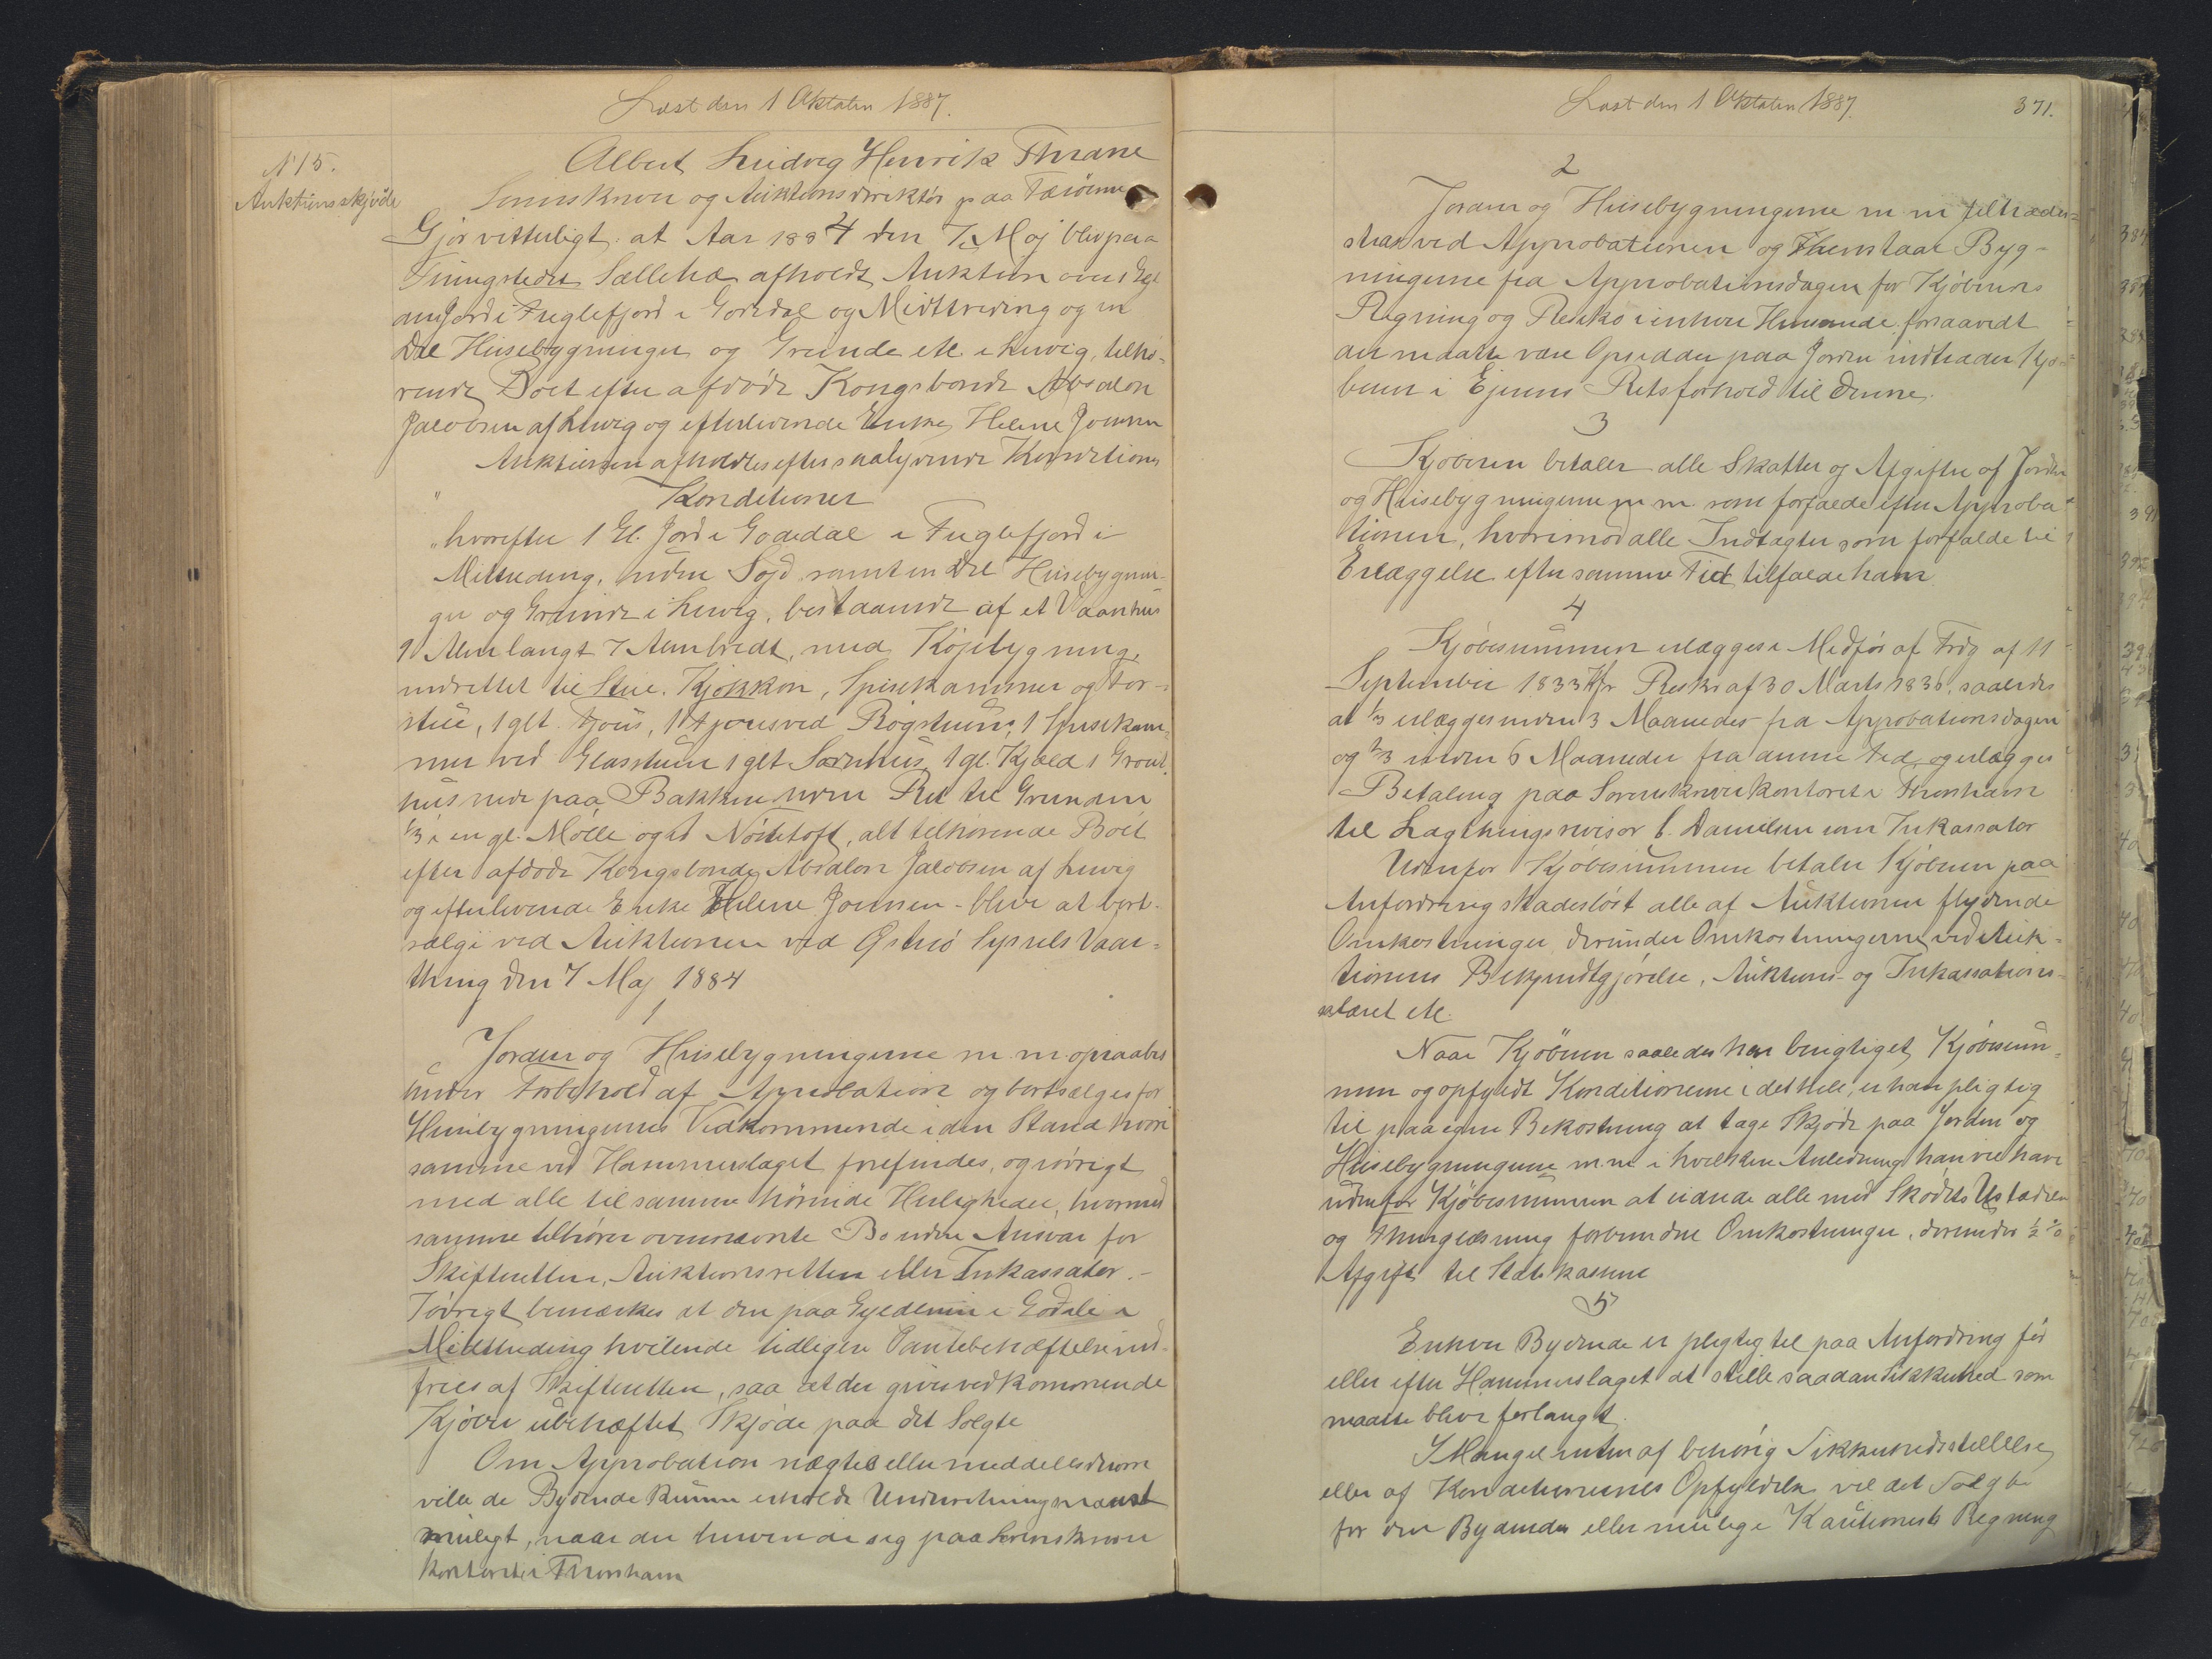 Læst den 1 Oktober 1887.
N 15.
Auktionsskjøde
Albert Ludvig Henrik Thrane
Sorenskriver og Auktionsdirektør paa Færöerne
Gjør vitterligt: at Aar 1884 den 7 Maj blev paa
Thingstedet Sælletræ afholdt Auktion over
Jord i Fuglefjord i Godedal og Midttræding og en
Del Husebygninger og Grunde etc i Lervig, tilhø-
rende Boet efter afdöde Kongsbonde Absalon
Jacobsen af Lervig og efterlevende Enke Helene Joensen
Auktionen afholdtes efter saalydende Konditioner
" Konditioner
"hvorefter 1 Gl. Jord i Godedal i Fuglefjord i
Midtreding, uden Sojd samt en Del Husebygnin-
ger og Grunde i Lervig, bestaaende af et Vaanhus
9 Alen langt 7 Alen bredt, med Køjebygning,
indrettet til Stue, Kjøkken, Spisekammer og For-
stue, 1 glt Hjous, 1 Hjous ved Rögstuen, 1 Spisekam-
mer ved Glasstuen 1 glt Sornhus, 1 gl. Kjæld 1 Grout-
hus nede paa Bakken uden Ret til Grunden
1/3 i en gl. Mölle og et Nöstetoft, alt tilhørende Boet
efter afdöde Kongsbonde Absalon Jacobsen af Lervig
og efterlevende Enke Helene Joensen - bliver at bort-
sælge ved Auktionen ved Østerø Syssels Vaar-
thing den 7 Maj 1884
1
Jorden og Husebygningerne m. m. opraabes
under Forbehold af Approbation og bortsælges for
Husebygningernes Vedkommende i den Stand hvori
samme ved Hammerslaget forefindes, og iövrigt
med alle til samme hörende Herligheder, hvormed
samme tilhører ovennævnte Bo uden Ansvar for
Skifteretten, Auktionsretten eller Inkassator.-
Iövrigt bemærkes at den paa Gyldenen i Godale i
Midttreding hvilende tidligere Pantebehæftelse ind-
fries af Skifteretten, saa at der gives vedkommende
Kjøber ubehæftet Skjøde paa det Solgte
Om Approbation nægtes eller meddeles derom
ville de Bydende kunne erholde Underretning snarest
muligt, naar de henvende sig paa Sorenskriver
kontoret i Thorshavn
Læst den 1 Oktober 1887.
371.
2
Jorden og Husebygningerne m m tiltrædes
strax ved Approbationen og henstaar Byg-
ningerne fra Approbationsdagen for Kjøberens
Regning og Risiko i enhver Henseende, forsaavidt
der maatte være Opsidder paa Jorden indtræder Kjø-
beren i Ejerens Retsforhold til denne.
3
Kjøberen betaler alle Skatter og Afgifter af Jorden
og Husebygningerne m m. som forfalde efter Approba-
tionen, hvorimod alle Indtægter som forfalde til
Erlæggelse efter samme Tid tilfalde ham
4
Kjøbesummen erlægges i Medfør af Frdg af 11
September 1833 Kfr Reskr af 30 Marts 1836, saaledes
at 1/3 erlægges inden 3 Maaneder fra Approbationsdagen
og 2/3 inden 6 Maaneder fra denne Tid, og erlægges
Betaling paa Sorenskriverkontoret i Thorshavn
til Lagthingsrevisor C. Danielsen som Inkassator
Udenfor Kjøbesummen betaler Kjøberen paa
Anfordring skadesløst alle af Auktionen flydende
Omkostninger, derunder Omkostningerne ved Auk-
tionens Bekjendtgjörelse, Auktions- og Inkassations-
salæret etc.
Naar Kjöberen saaledes har berigtiget Kjöbesum-
men og opfyldt Konditionerne i det Hele, er han pligtig
til paa egen Bekostning at tage Skjöde paa Jorden og
Husebygningerne m.m i hvilken Anledning han vil have
udenfor Kjöbesummen at udrede alle med Skødets Udstædelse
og Thinglæsning forbundne Omkostninger, derunder ½ %
Afgift til Statskassen
5
Enhver Bydende er pligtig til paa Anfordring før
eller efter Hammerslaget at stille saadan Sikkerhed som
maatte blive forlangt.
I Mangel enten af behørig Sikkerhedsstillelse
eller af Konditionernes Opfyldelse vil det Solgte
for den Bydendes eller mulige Kautionists Regning